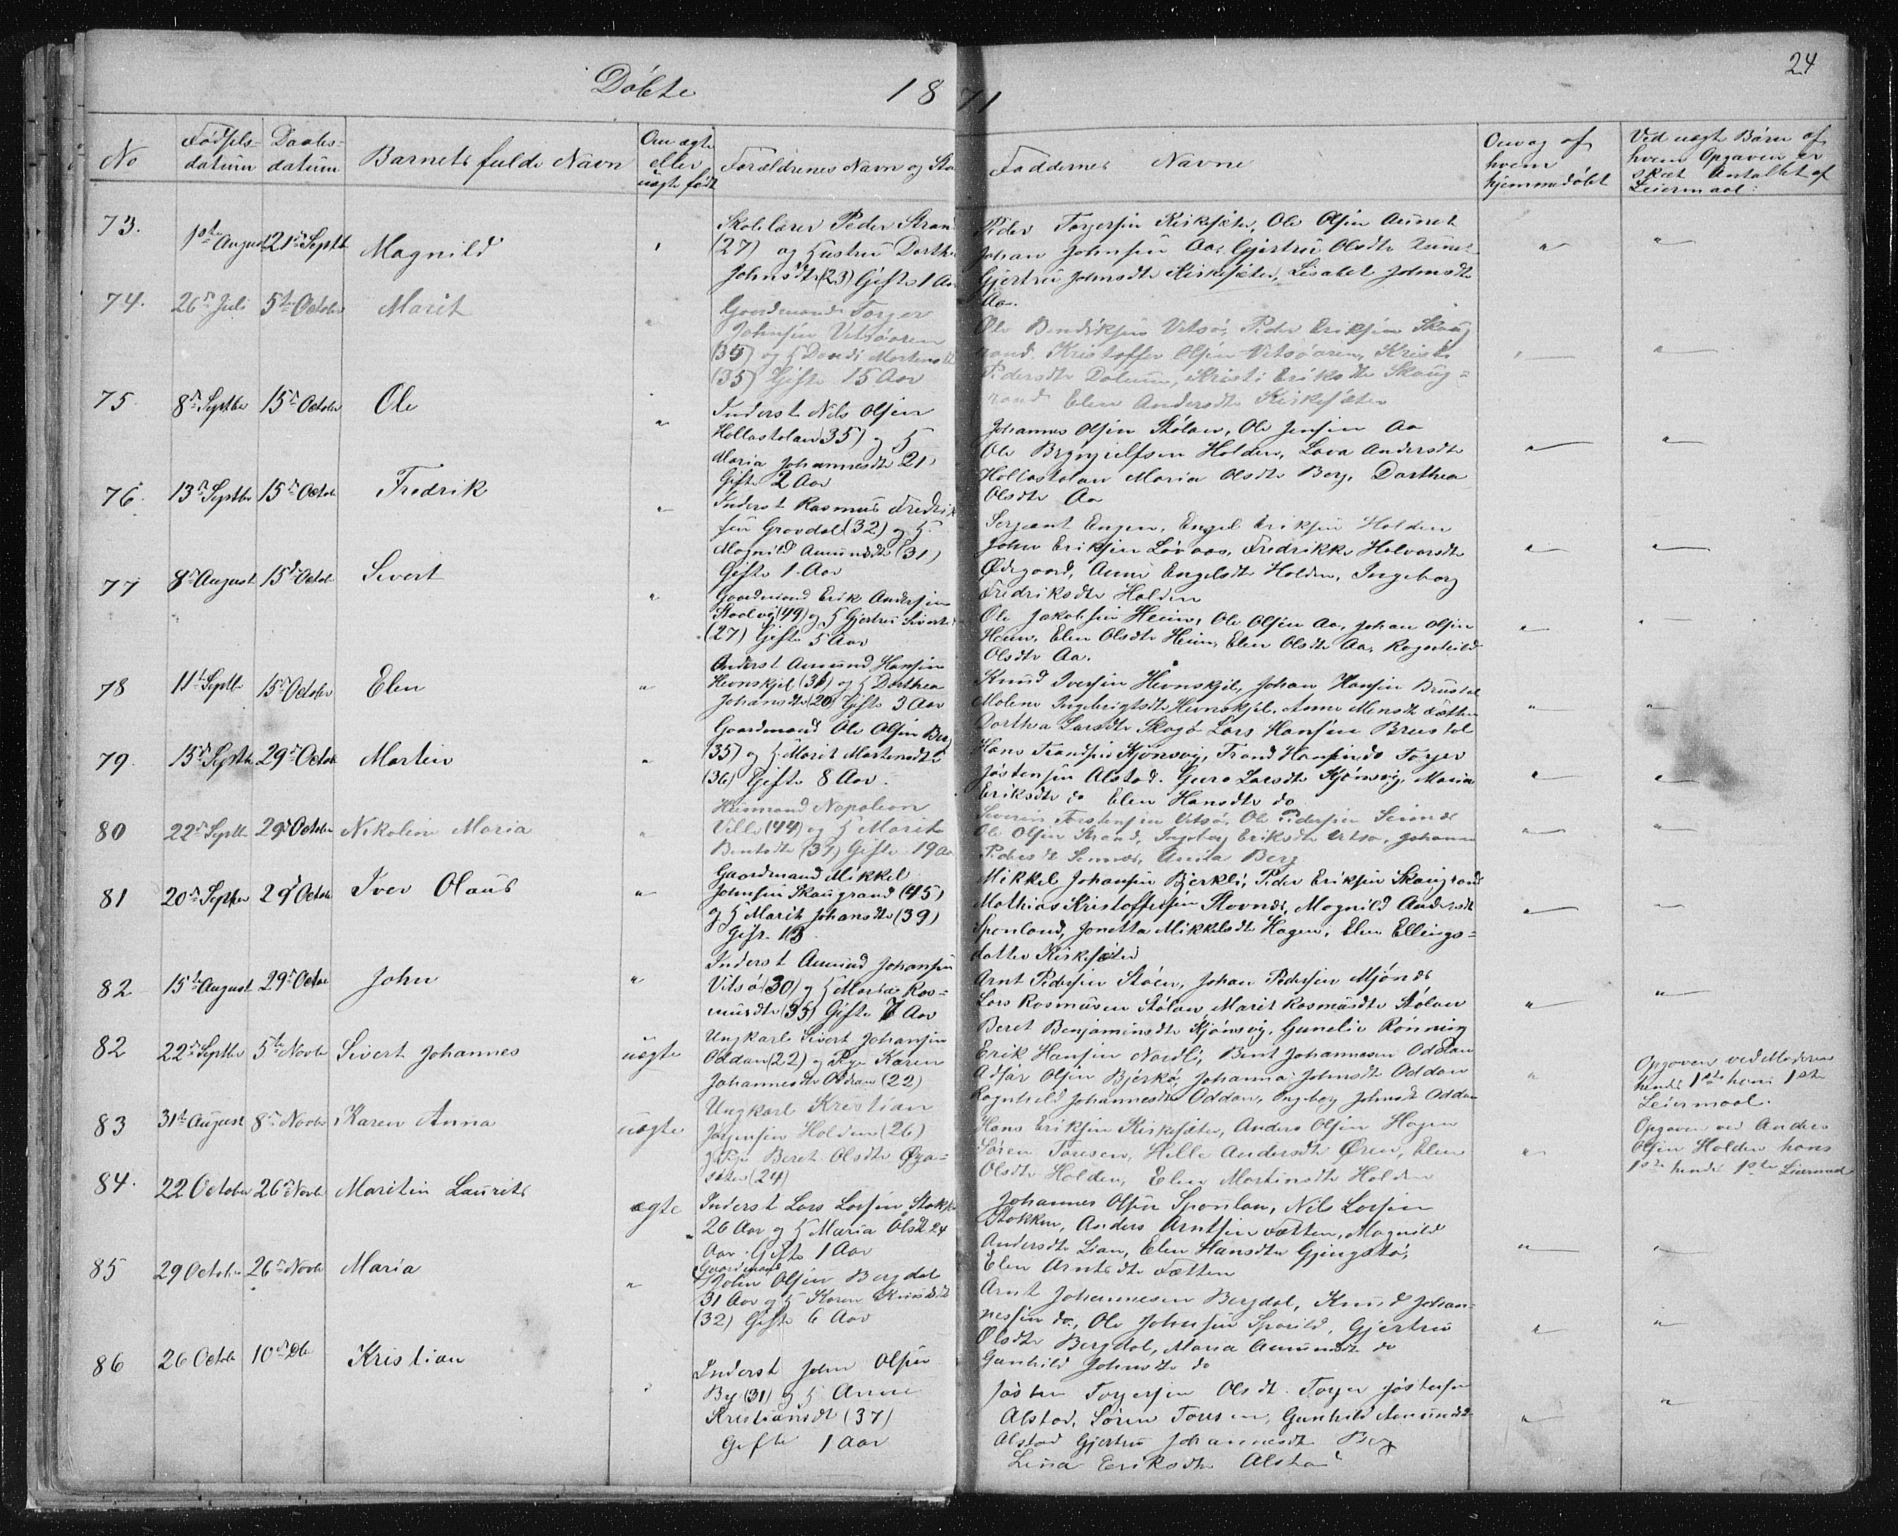 24
Döbte 1871
No
Fødsels-
datum
Daabs-
datum
Barnets fulde Navn
Om ægte
eller
uægte født
Forældrenes Navn og Sta
Faddernes Navne
Om og af
hvem
hjemmedøbt
Ved uægt Børn af
hvem Opgaven er
skeet Antallet af
Leiermaal:
73.
1ste August
21de Septbr
Magnild
"
Skolelærer Peder Stran
(27) og Hustru Dorthe
Johnsdt (23) Gifte 1 Aar
Peder Torgersen Kirksæter, Ole Olsen Aunet
Johan Johnsen Aa, Gjertru Olsdtr Aunet
Gjertru Johnsdtr Kirksæter, Lisabet Johnsdtr
Aa.
74.
26de Juli
5te Octobr
Marit
Gaardmand Torger
Johnsen Vitsøaren
(35) og H Dordi Mortensdt
(35) Gifte 15 Aar
Ole Bendiksen Vitsø, Peder Eriksen Skaug
rand. Kristoffer Olsen Vitsøaren, Kristi
Pedersdtr, Kristi Eriksdtr Skaug=
rand Elen Andersdtr Kirksæter
75
8de Septbr
15de Octobr
Ole
Inderst Nils Olsen
Hollastølan (35) og H
Maria Johannesdtr 21
Gifte 2 Aar
Johannes Olsen Stølan, Ole Jensen Aa
Ole Brynjulfsen Holden, Lava Andersdtr
Hollastølan Maria Olsdtr Berg, Dorthea
Olsdtr Aa
76.
13de Septbr
15de Octob
Fredrik
Inderst Rasmus Fredrik
sen Grovdal (32) og H.
Magnild Amundsdtr (31)
Gifte 1 Aar
Serjeant Engen, Engel Eriksen Holden
John Eriksen Løvaas, Fredrikke Halvorsdtr
Ødegaard, Anne Engelsdtr Holden, Ingeborg
Fredriksdtr Holden
77
8de August
15de Octob
Sivert
Gaardmand Erik Andersen
(49) og H Gjertru Siverts
(27) Gifte 5 Aar
Ole Jakobsen Heim, Ole Olsen Aa, Johan Olsen
Heim, Elen Olsdtr Heim, Elen Olsdtr Aa, Ragnhild
Olsdtr Aa.
78
11te Septb
15de Octobr
Elen
Inderst Amund Hansen
Hevnskjel (31) og H Dorthea
Johansdtr (20) Gifte 3 Aar
Knud Iversen Hevnskjel, Johan Hansen Brustol
Malene Ingebrigtsdtr Hevnskjel, Anne Monsdtr
Dorthea Larsdtr Skogø Lars Hansen Brustol
79.
15de Septbr
29de Octob
Martin
Gaardmand Ole Olsen Ber
(35) og H Marit Mortensdtr
(36) Gifte 8 Aar.
Hans Trondsen Kjønsvig, Trond Hansen do Torger
Jøstensen Alstad. Guro Larsdtr Kjønsvig, Maria
Eriksdtr do Elen Hansdtr do
80
22de Septb
29de Octobr
Nikoline Maria
Husmand Napoleon
Ville (44) og H Marit
Bentsdtr (39) Gifte 19 Aa
Severin Torstensen Vitsø, Ole Pedersen
Ole Olsen Strand, Ingeborg Eriksdtr Vitsø, Johanna
Pedersdtr, Anita Berg
81
20de Septbr
29de Octob
Iver Olaus
Gaardmand Mikkel
Johnsen Skaugrand (45)
og H Marit Johansdtr (39)
Gift 13.
Mikkel Johansen Bjerkli, Peder Eriksen Skaugrand
Mathias Kristoffersen Stovnes, Magnild Andersdt
Sponland, Jonetta Mikkelsdtr Hagen, Elen Ellings=
datter Kirksæter
82
15de August
29de Octobr
John
Inderst Amund Johansen
Vitsø (30) og H Maria Ras=
musdtr (35) Gifte 7 Aar
Arnt Pedersen Støen, Johan Pedersen Mjønes
Lars Rasmusen Stølan, Marit Rasmusdtr Stølan
Beret Benjaminsdtr Kjønsvig, Gunelie Rønning
82
22de Septbr
5te Novbr
Sivert Johannes
uægte
Ungkarl Sivert Johansen
Oddan (22) og Pige Karen
Johannesdtr Oddan (22)
Erik Hansen Nordli, Bent Johannesen Oddan
Olsen Bjerkø, Johanna Johnsdt Oddan
Ragnhild Johannesdtr Oddan, Ingeborg Johnsdt Oddan
Opgaven ved Moderen
hendes 1ste hans 1ste
Leiermaal.
83
31te August
8de Novbr
Karen Anna
uægte
Ungkarl Kristian
Jørgensen Holden (26)
og Pige Beret Olsdtr Øya=
sæter (24)
Hans Eriksen Kirksæter, Anders Olsen Hagen
Søren Toresen, Hille Andersdtr Øren, Elen
Olsdtr Holden, Elen Martinsdtr Holden
Opgaven ved Anders
Olsen Holden hans
1ste hendes 1ste Leiermaal
84.
22 October
26de Novb
Maritin Laurits
ægte
Inderst Lars Larsen Stokk
26 Aar og H Maria Olsdt 24
Aar. Gifte 1 Aar
Johannes Olsen Sponlan, Nils Larsen
Stokken, Anders Arntsen Fætten, Magnild
Andersdtr Lian, Elen Hansdtr Gjengstø,
Elen Arntsdtr Fætten
85
29 Octobr
26de Novb
Maria
"
Gaardmand
John Olsen Bergdal
31 Aar og H Karen Knudsdtr
(32) Gifte 6 Aar
Arnt Johannesen Bergdal, Knud Johan=
nessen do, Ole Johnsen, Gjertru
Olsdtr Bergdal, Maria Amundsdtr do
Gunhild Johnsdtr do
86
26 Octobr
10de Db
Kristian
"
Inderst John Olsen
By (31) og H Anne
Kristiansdt (37)
Gifte 1 Aar
Jøsten Torgersen Olsdt. Torger Jøstensen
Alstad, Søren Toresen, Gunhild Amundsdt
Alstad Gjertru Johannesdt Berg
Lina Eriksdtr Alstad